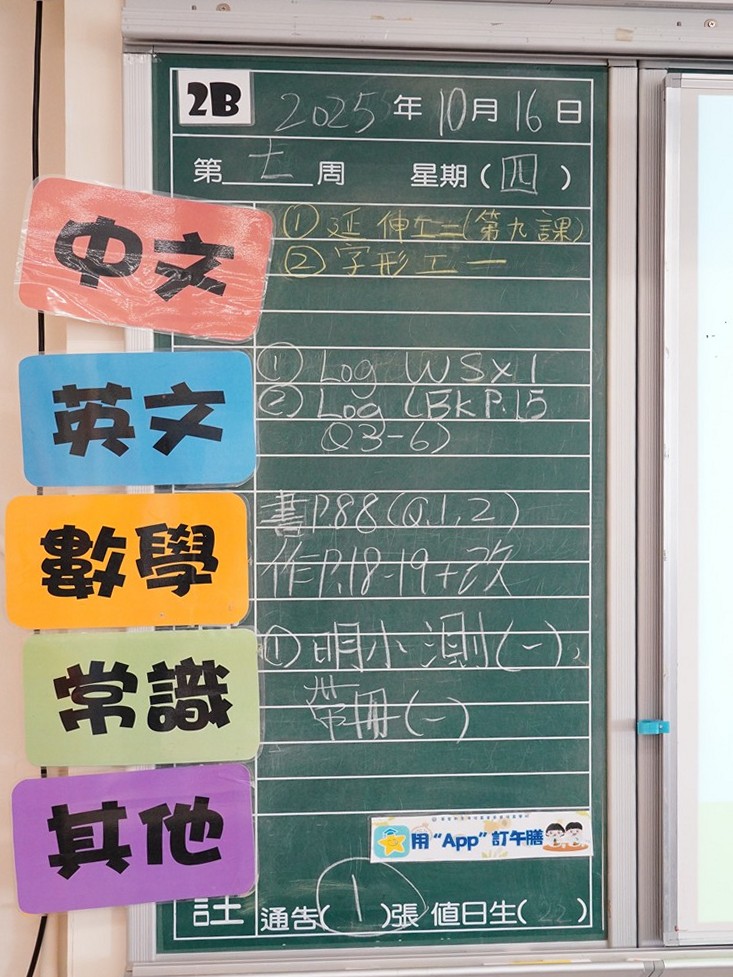 2B 2025年10月16日
第七周 星期(四)
中文
①延伸工二(第九課)
②字形工一
英文
① Log WSx1
② Log (BK P.15
Q3-6)
數學
書P88(Q.1,2)
作P.18-19+改
常識
①明小測(一),
帶冊(一)
其他
用“App”訂午膳
註 通告(1)張 值日生(22)